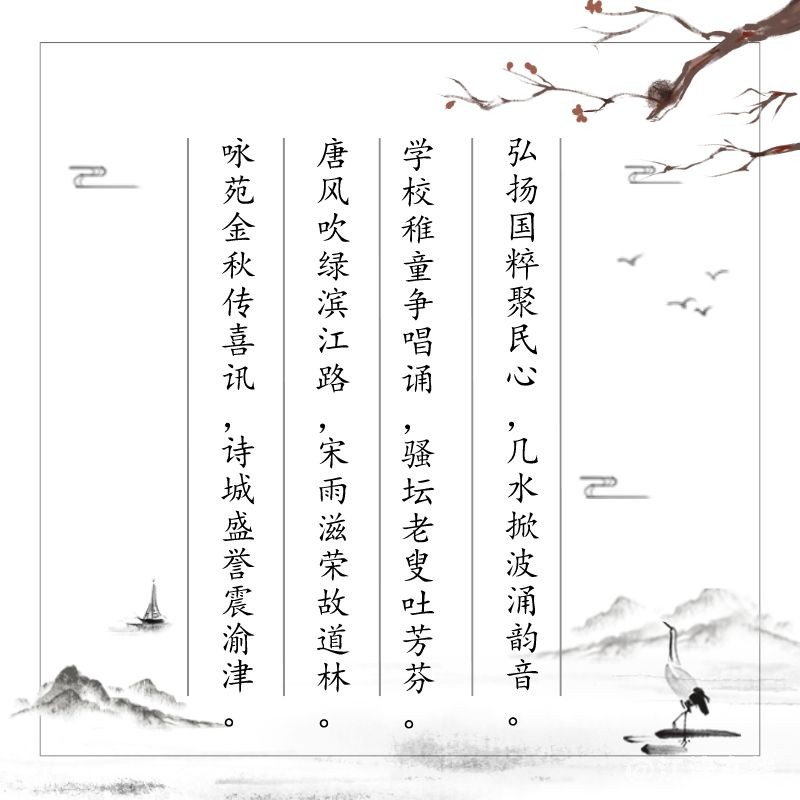 咏苑金秋传喜讯，诗城盛誉震渝津。
唐风吹绿滨江路，宋雨滋荣故道林。
学校稚童争唱诵，骚坛老叟吐芳芬。
弘扬国粹聚民心，几水掀波涌韵音。